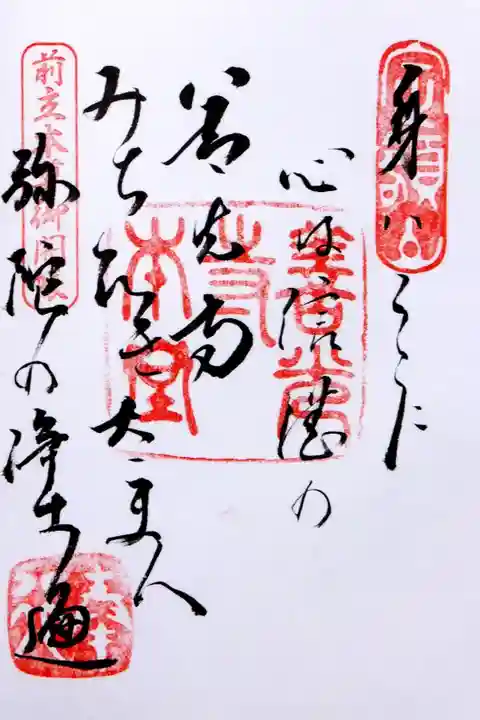 身ハこゝに
心は信濃の
善光寺
みちびきたまへ
弥陀の浄土邊
前立本尊御開帳
本堂